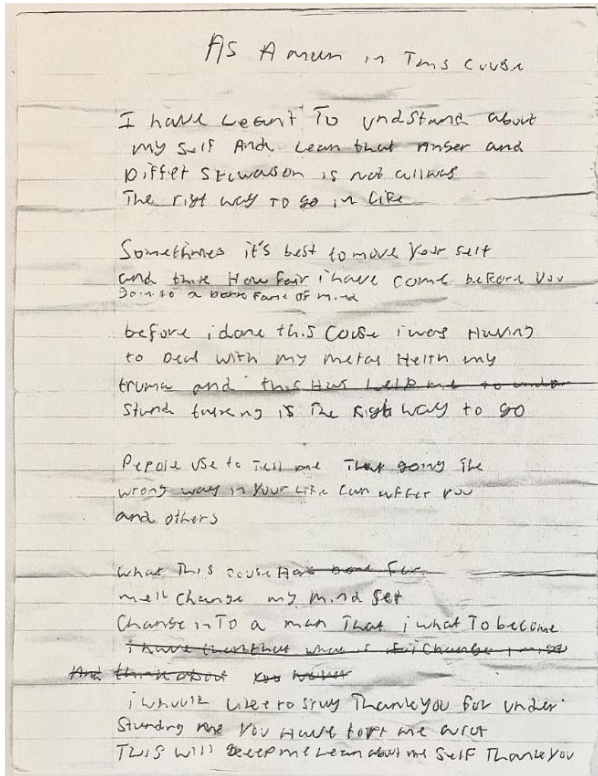 As A man in This Couse
I have Leant To undStand about
my Self And Lean that Anger and
Differ is not allways
The right way to go in Life
Sometimes it's best to move your self
and think How fair i have come before you
Going to a dark of mind
before i done this Couse i was Having
to Deal with my metal Helth my
truma and this Has help me to under
Stand talking is The Right way to go
Pepole use to Tell me That going The
wrong way in Your Life Can affer you
and others
what This couse Has done for
me Change my mind Set
Change inTo a man That i what To become
i have that what is if i Change
And think about
i whould Like to Say Thank you for under
Standing me You Have me
THIS will me Lean about me SelF Thank you